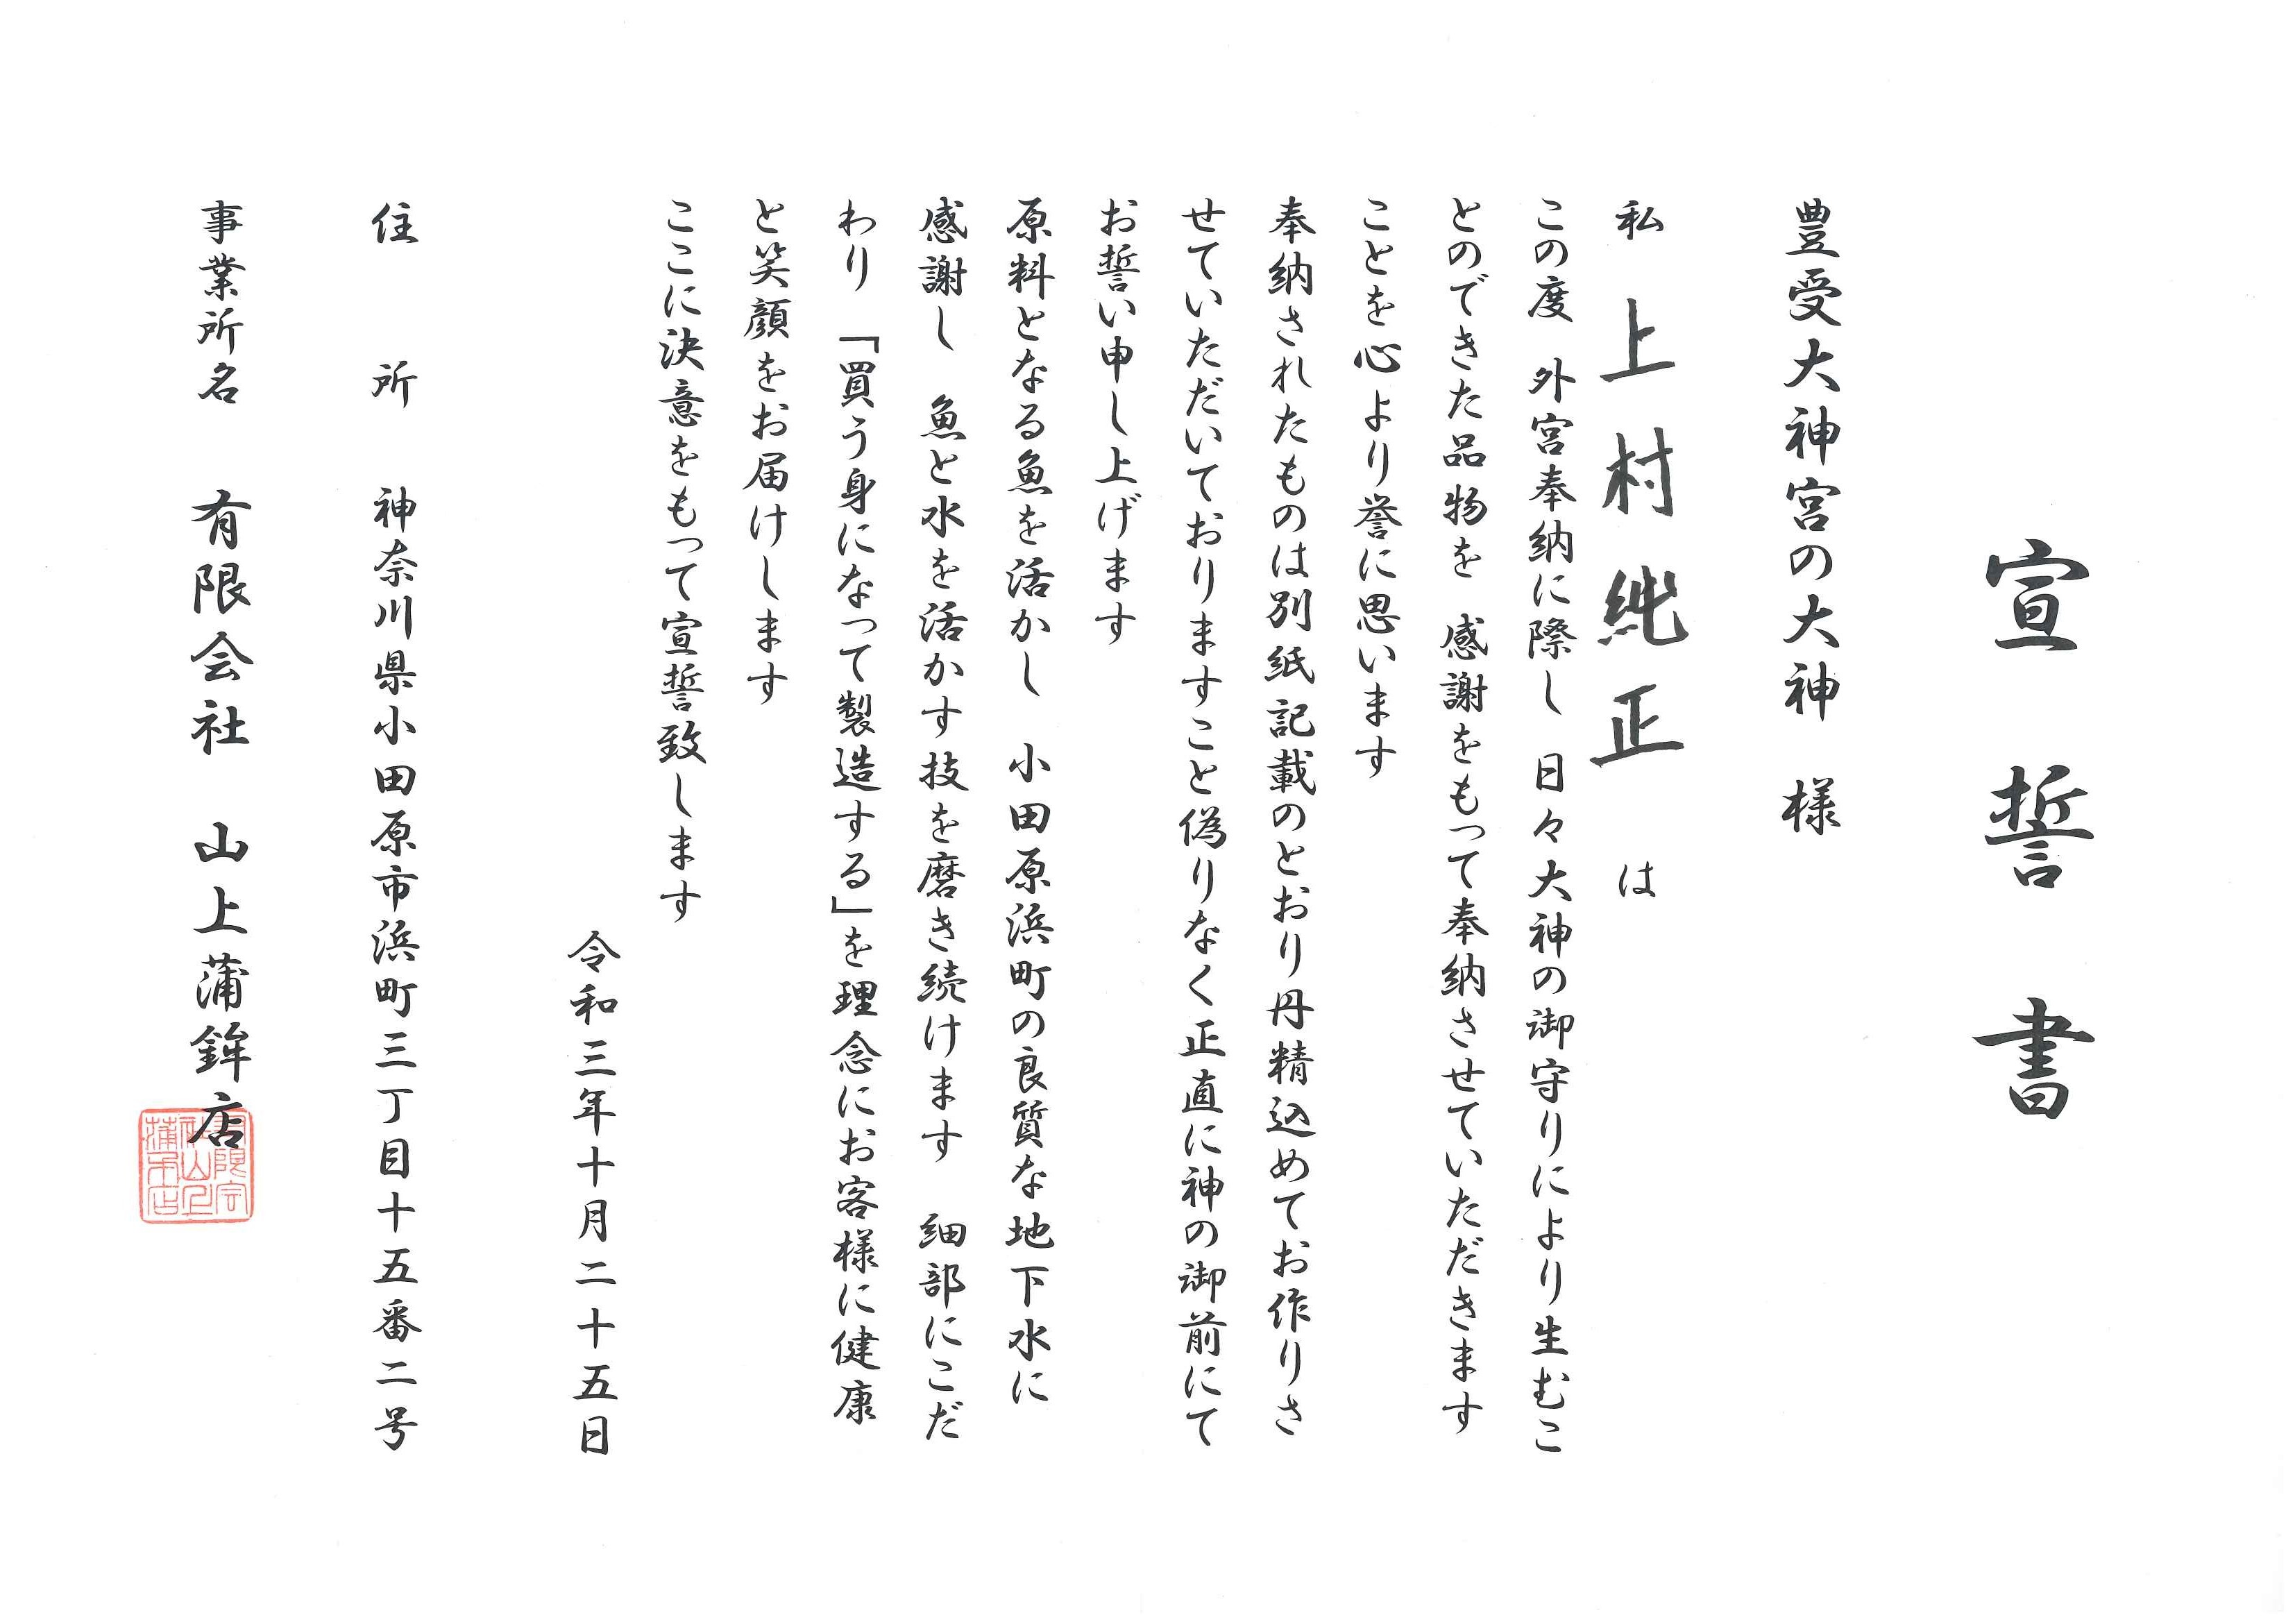 宣誓書
豊受大神宮の大神　様
私　上村純正　は
この度　外宮奉納に際し　日々大神の御守りにより生むこ
とのできた品物を　感謝をもって奉納させていただきます
ことを心より誉に思います
奉納されたものは別紙記載のとおり丹精込めてお作りさ
せていただいておりますこと偽りなく正直に神の御前にて
お誓い申し上げます
原料となる魚を活かし　小田原浜町の良質な地下水に
感謝し　魚と水を活かす技を磨き続けます　細部にこだ
わり　「買う身になって製造する」を理念にお客様に健康
と笑顔をお届けします
ここに決意をもって宣誓致します
令和三年十月二十五日
住所　神奈川県小田原市浜町三丁目十五番二号
事業所名　有限会社　山上蒲鉾店